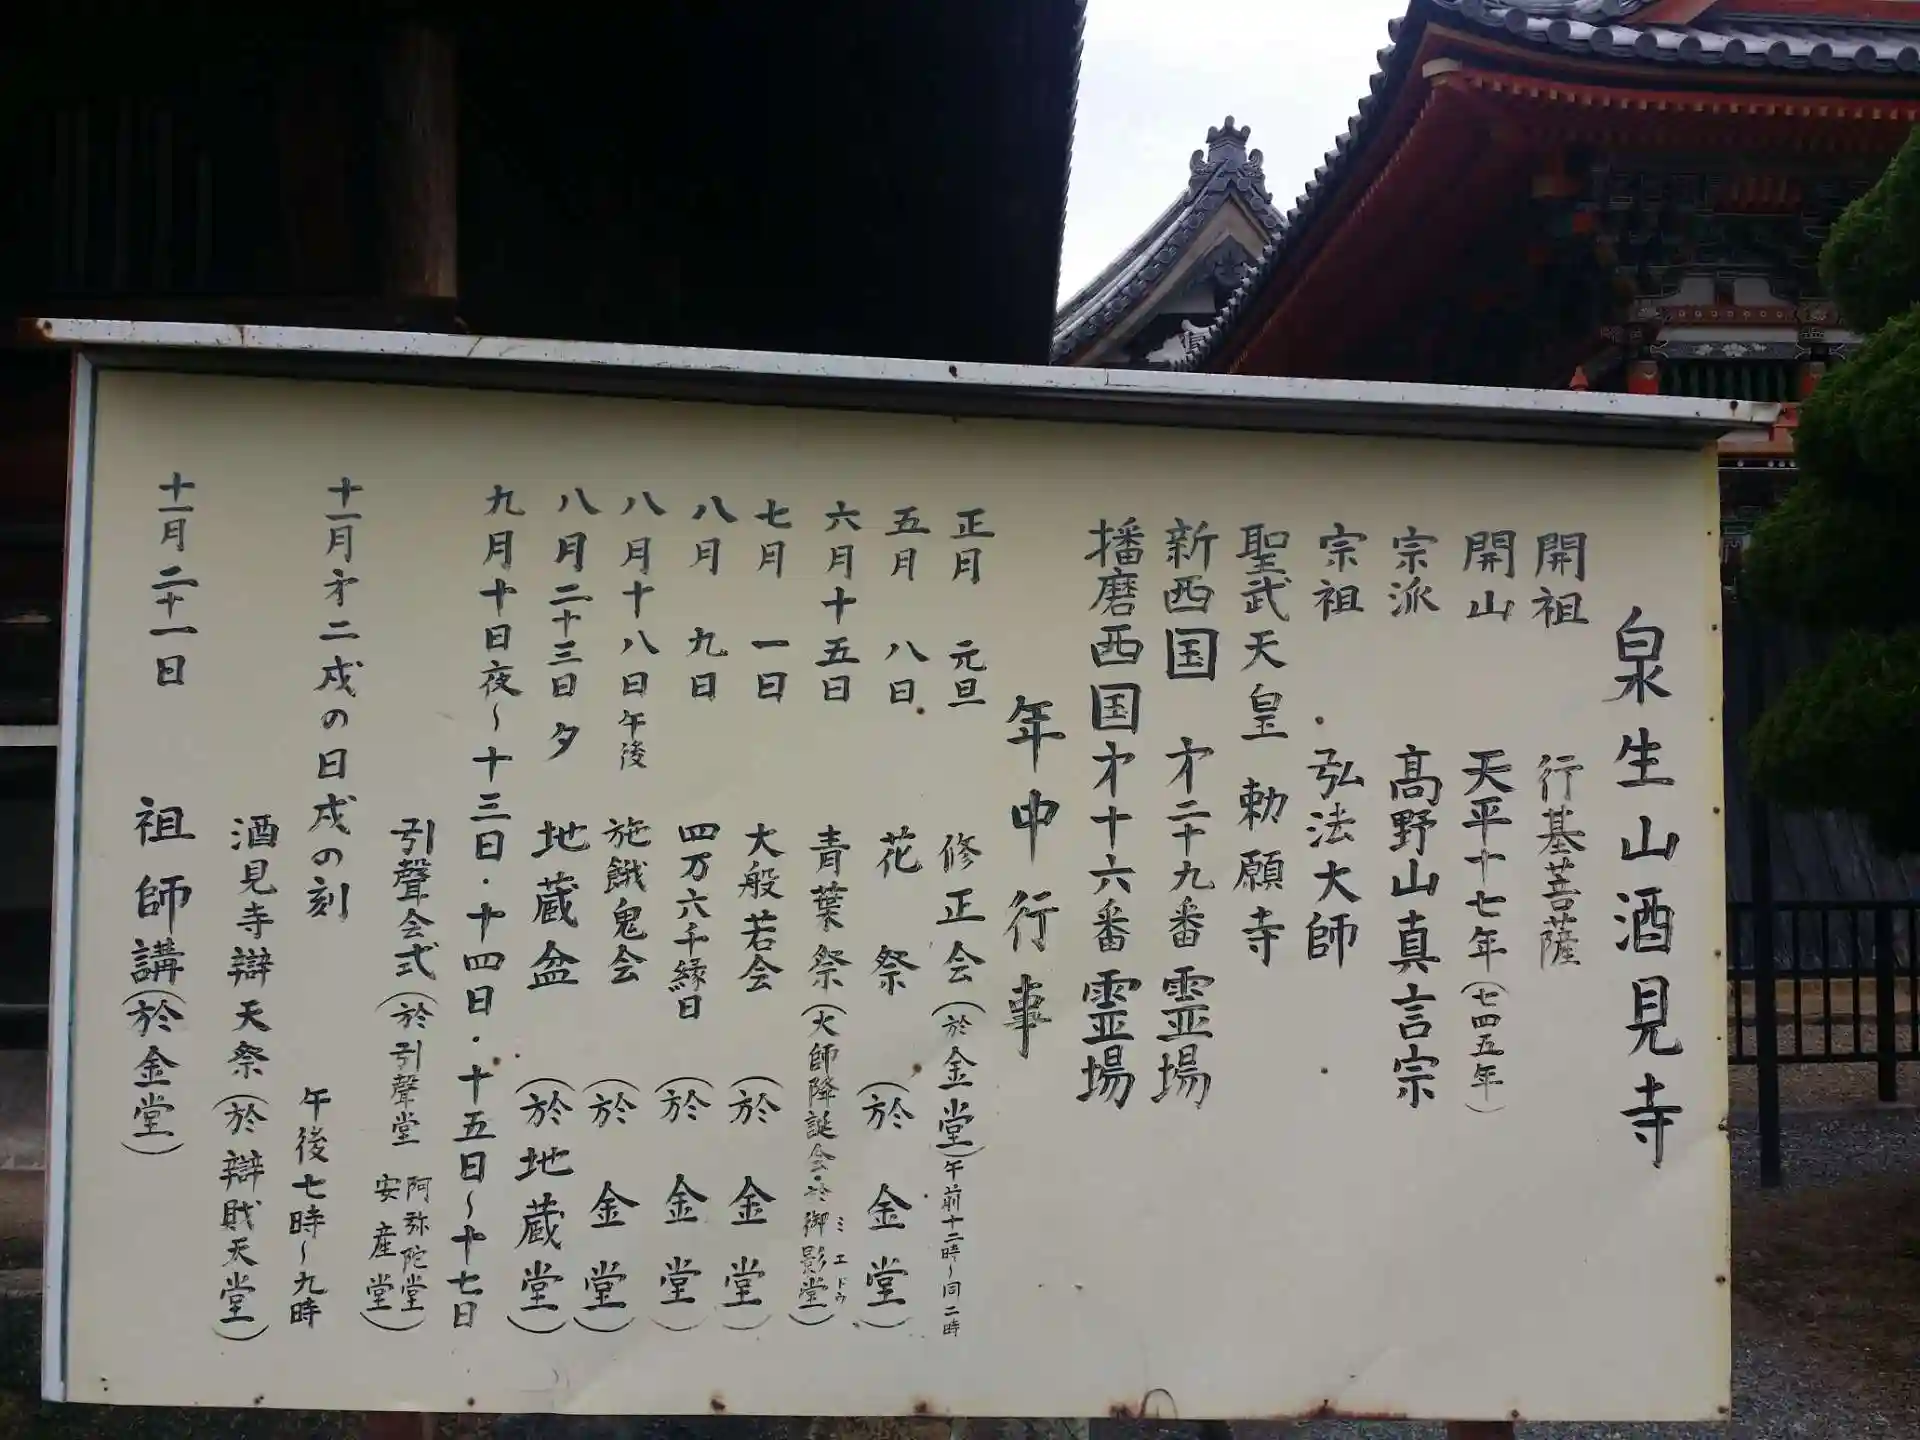 泉生山酒見寺
開祖 行基菩薩
開山 天平十七年(七四五年)
宗派 高野山真言宗
宗祖 弘法大師
聖武天皇 勅願寺
新西国 才二十九番 霊場
播磨西国才十六番 霊場
年中行事
正月 元旦 修正会(於金堂)午前十二時~同二時
五月 八日 花祭(於金堂)
六月十五日 青葉祭(大師降誕会・於御影堂)ミエドウ
七月 一日 大般若会(於金堂)
八月 九日 四万六千縁日(於金堂)
八月十八日午後 施餓鬼会(於金堂)
八月二十三日夕 地蔵盆(於地蔵堂)
九月十日夜~十三日・十四日・十五日~十七日
引聲会式(於引聲堂 阿弥陀堂 安産堂)
十一月才二戌の日戌の刻 午後七時~九時
酒見寺辯天祭(於辯財天堂)
十一月二十一日 祖師講(於金堂)